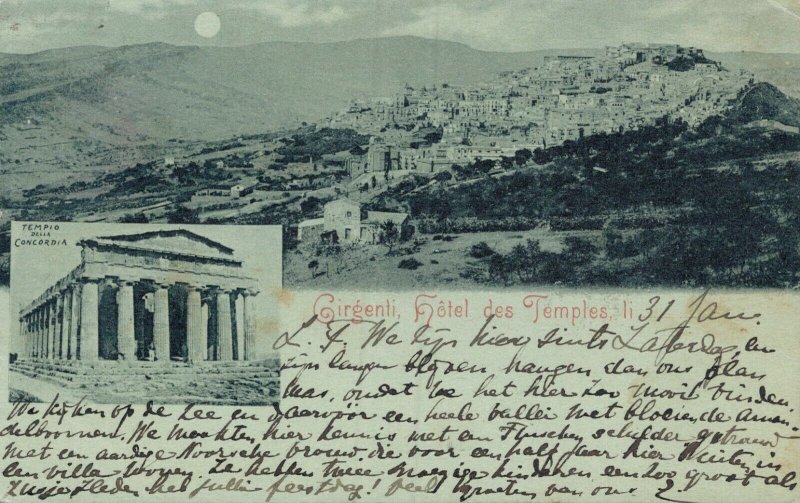 TEMPIO
DELLA
CONCORDIA
Girgenti, Hôtel des Temples, li 31 Jan.
L. F. We zijn hier sints Zaterdag en
zijn langer blijven hangen dan ons plan
was, omdat we het hier zoo mooi vinden.
We kijken op de zee en daarvoor een heele vallei met bloeiende aman-
delboomen. We maakten hier kennis met een schilder getrouwd
met een aardige Noorsche vrouw, die voor een half jaar hier in
een villa wonen. Ze hebben twee kinderen even zoo groot als
het jullie feestdag! Veel groeten van ons 2.